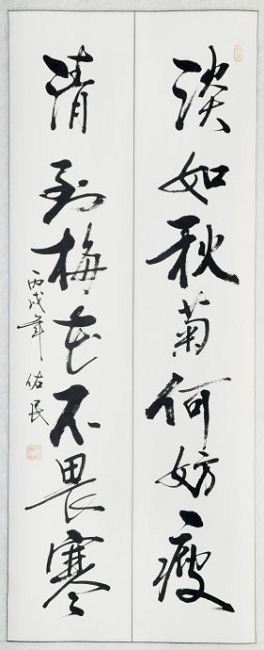 淡如秋菊何妨瘦
清到梅花不畏寒
丙戌年佑民